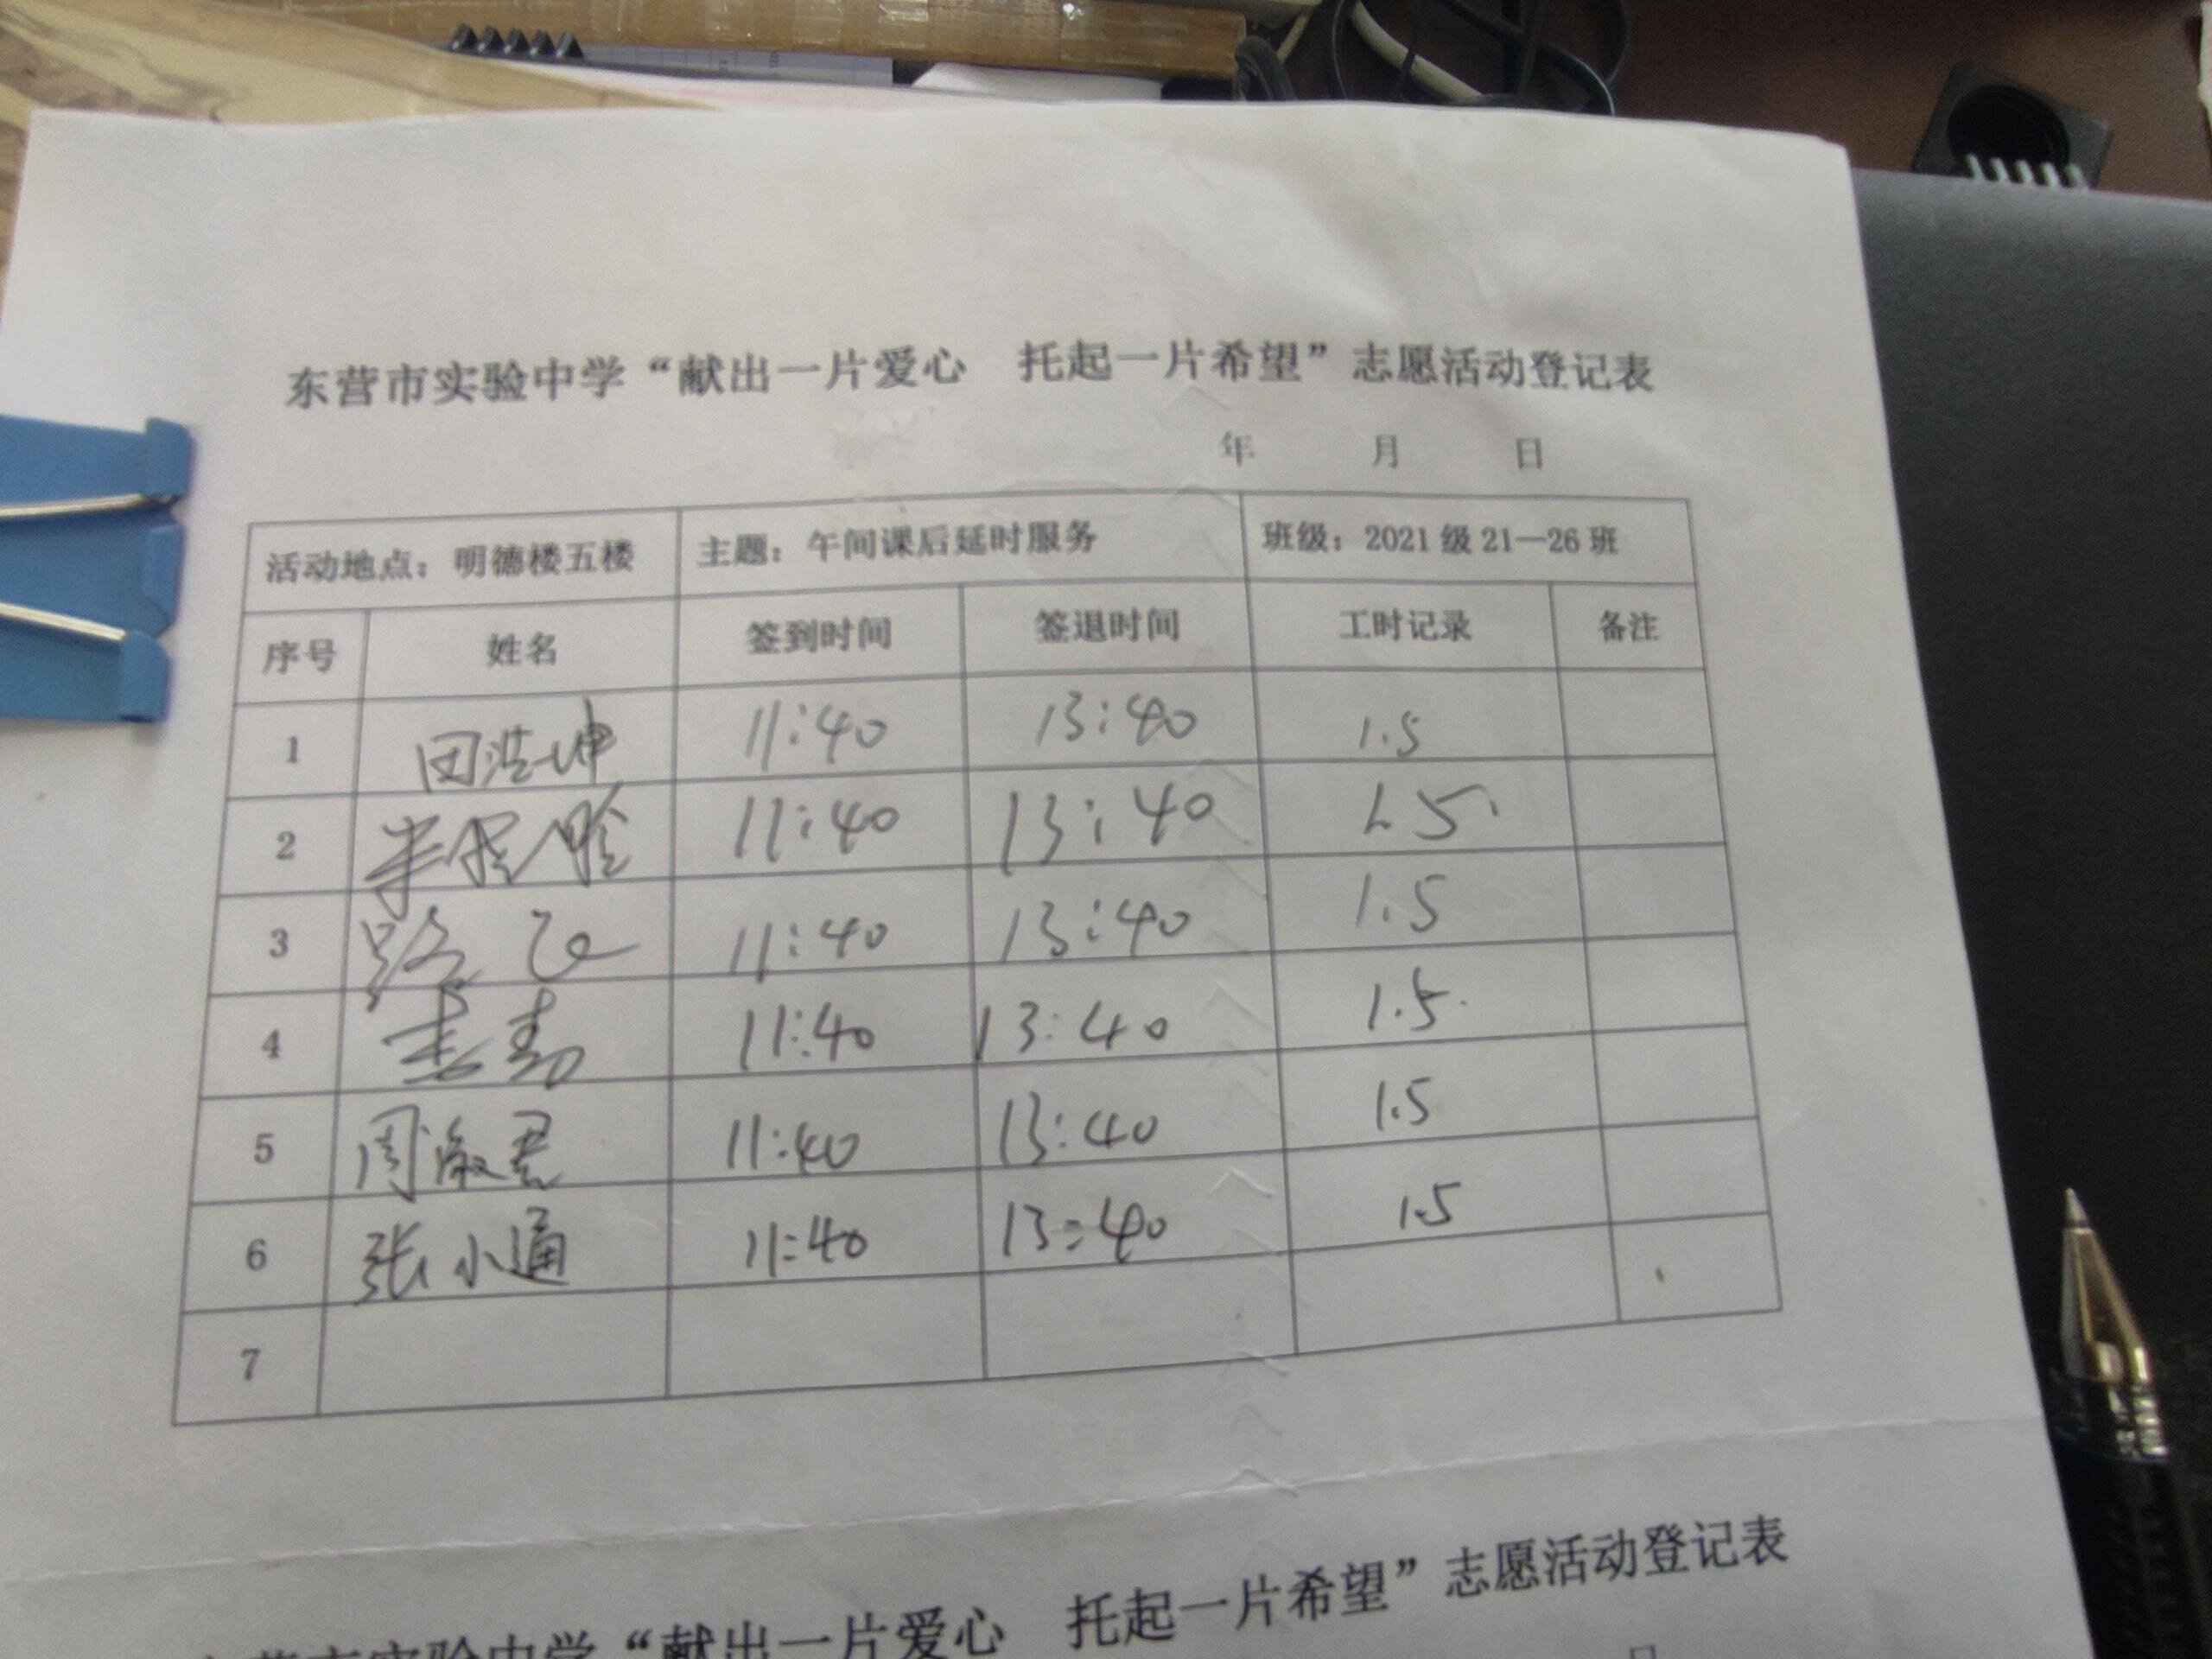 东营市实验中学“献出一片爱心 托起一片希望”志愿活动登记表
年 月 日
活动地点：明德楼五楼 主题：午间课后延时服务 班级：2021级21—26班
序号 姓名 签到时间 签退时间 工时记录 备注
1 田浩坤 11:40 13:40 1.5
2 11:40 13:40 1.5
3 路飞 11:40 13:40 1.5
4 11:40 13:40 1.5
5 周淑君 11:40 13:40 1.5
6 张小通 11:40 13:40 1.5
7
东营市实验中学“献出一片爱心 托起一片希望”志愿活动登记表
日